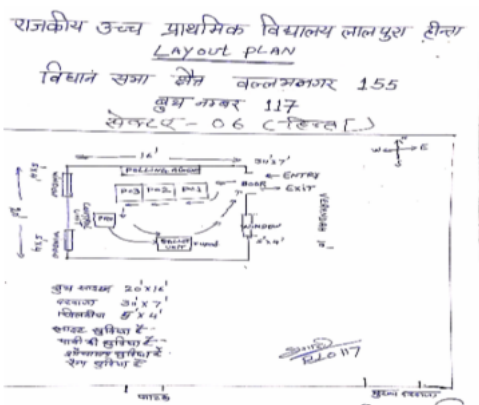 राजकीय उच्च प्राथमिक विद्यालय लालपुरा हीन्ता
LAYOUT PLAN
विधान सभा क्षैत्र वल्लभनगर 155
बुथ नम्बर 117
सेक्टर - 06 (हिन्ता)
16'
30'x7'
W E
POLLING AGENT
ENTRY
P=3 P=2 P=1
DOOR
Exit
WINDOW
WINDOW
WINDOW
5'x4'
BALLOT UNIT
VERANDAH
बुथ साइज 20'x16'
दरवाजा 30'x7'
खिडकीया 5'x4'
लाइट सुविधा है
पानी की सुविधा है
शौचालय सुविधा है
रेम्प सुविधा है
BLO 117
फाटक
मुख्य दरवाजा